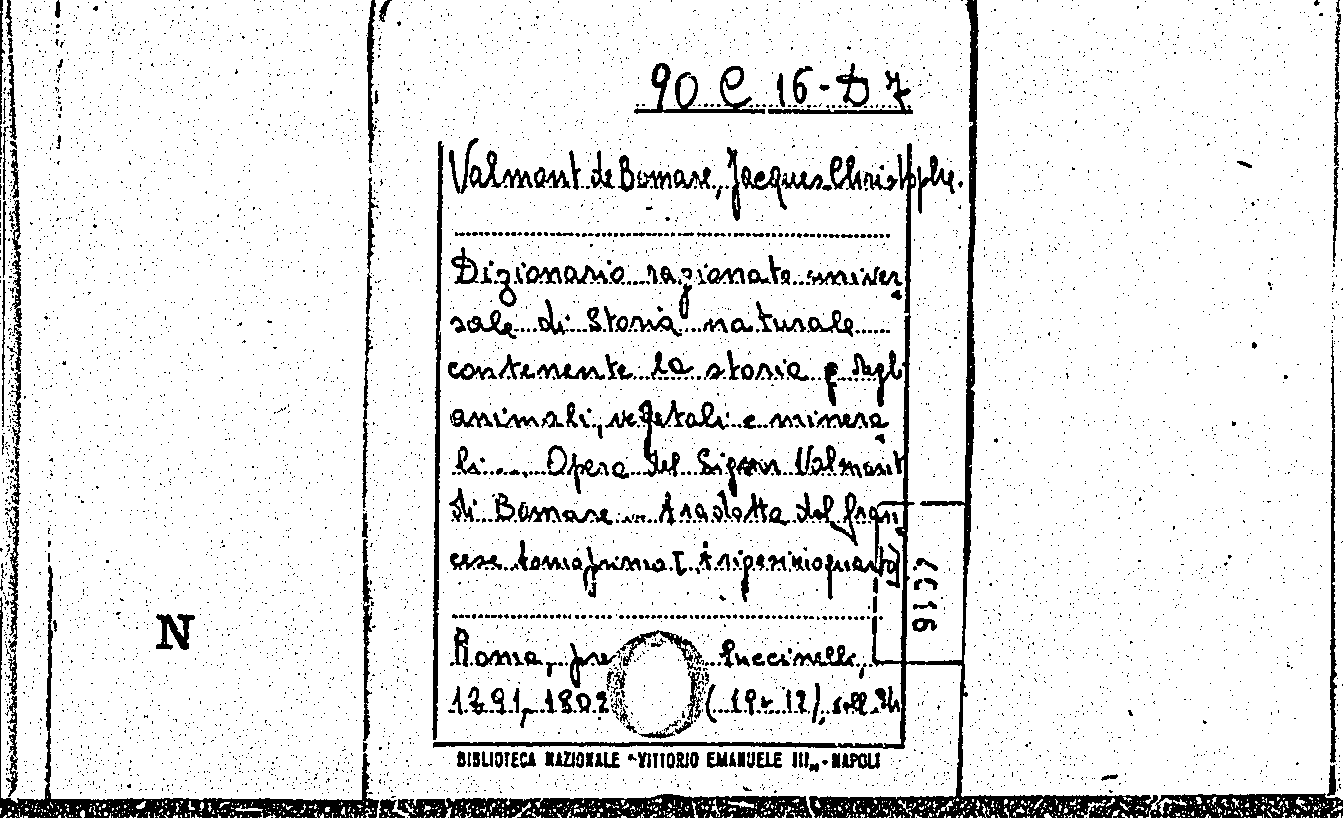 90 C 16-D 7
Valmont de Bomare, Jacques Christophe.
Dizionario ragionato univer
sale di Storia naturale
contenente la storia degl
animali, vegetali e minera
li.... Opera del Signor Valmont
di Bomare ... tradotta dal fran
cese tomo primo [
Roma, Puccinelli,
1791, 1802 (19 x 12),
BIBLIOTECA NAZIONALE "VITTORIO EMANUELE III„ - NAPOLI
N